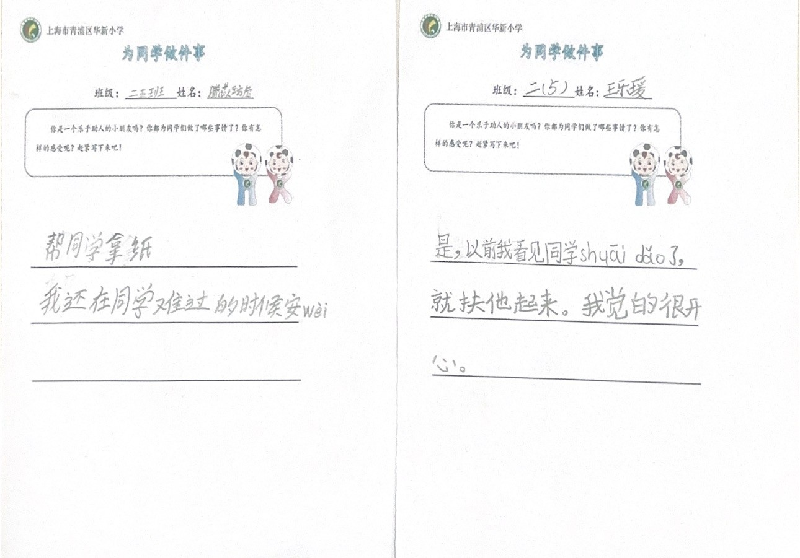 上海市青浦区华新小学
为同学做件事
班级：二五班 姓名：
你是一个乐于助人的小朋友吗？你都为同学们做了哪些事情了？你有怎
样的感受呢？赶紧写下来吧！
帮同学拿纸
我还在同学难过的时候安wèi
上海市青浦区华新小学
为同学做件事
班级：二（5） 姓名：王乐瑗
你是一个乐于助人的小朋友吗？你都为同学们做了哪些事情了？你有怎
样的感受呢？赶紧写下来吧！
是，以前我看见同学shuāi dǎo了，
就扶他起来。我觉的很开
心。